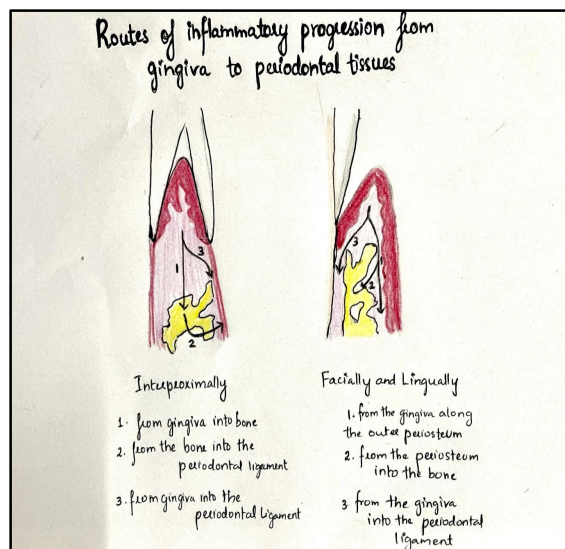 Routes of inflammatory progression from
gingiva to periodontal tissues
3
1
2
3
1
2
Interproximally
1. from gingiva into bone
2. from the bone into the
periodontal ligament
3. from gingiva into the
periodontal ligament
Facially and Lingually
1. from the gingiva along
the outer periosteum
2. from the periosteum
into the bone
3 from the gingiva
into the periodontal
ligament